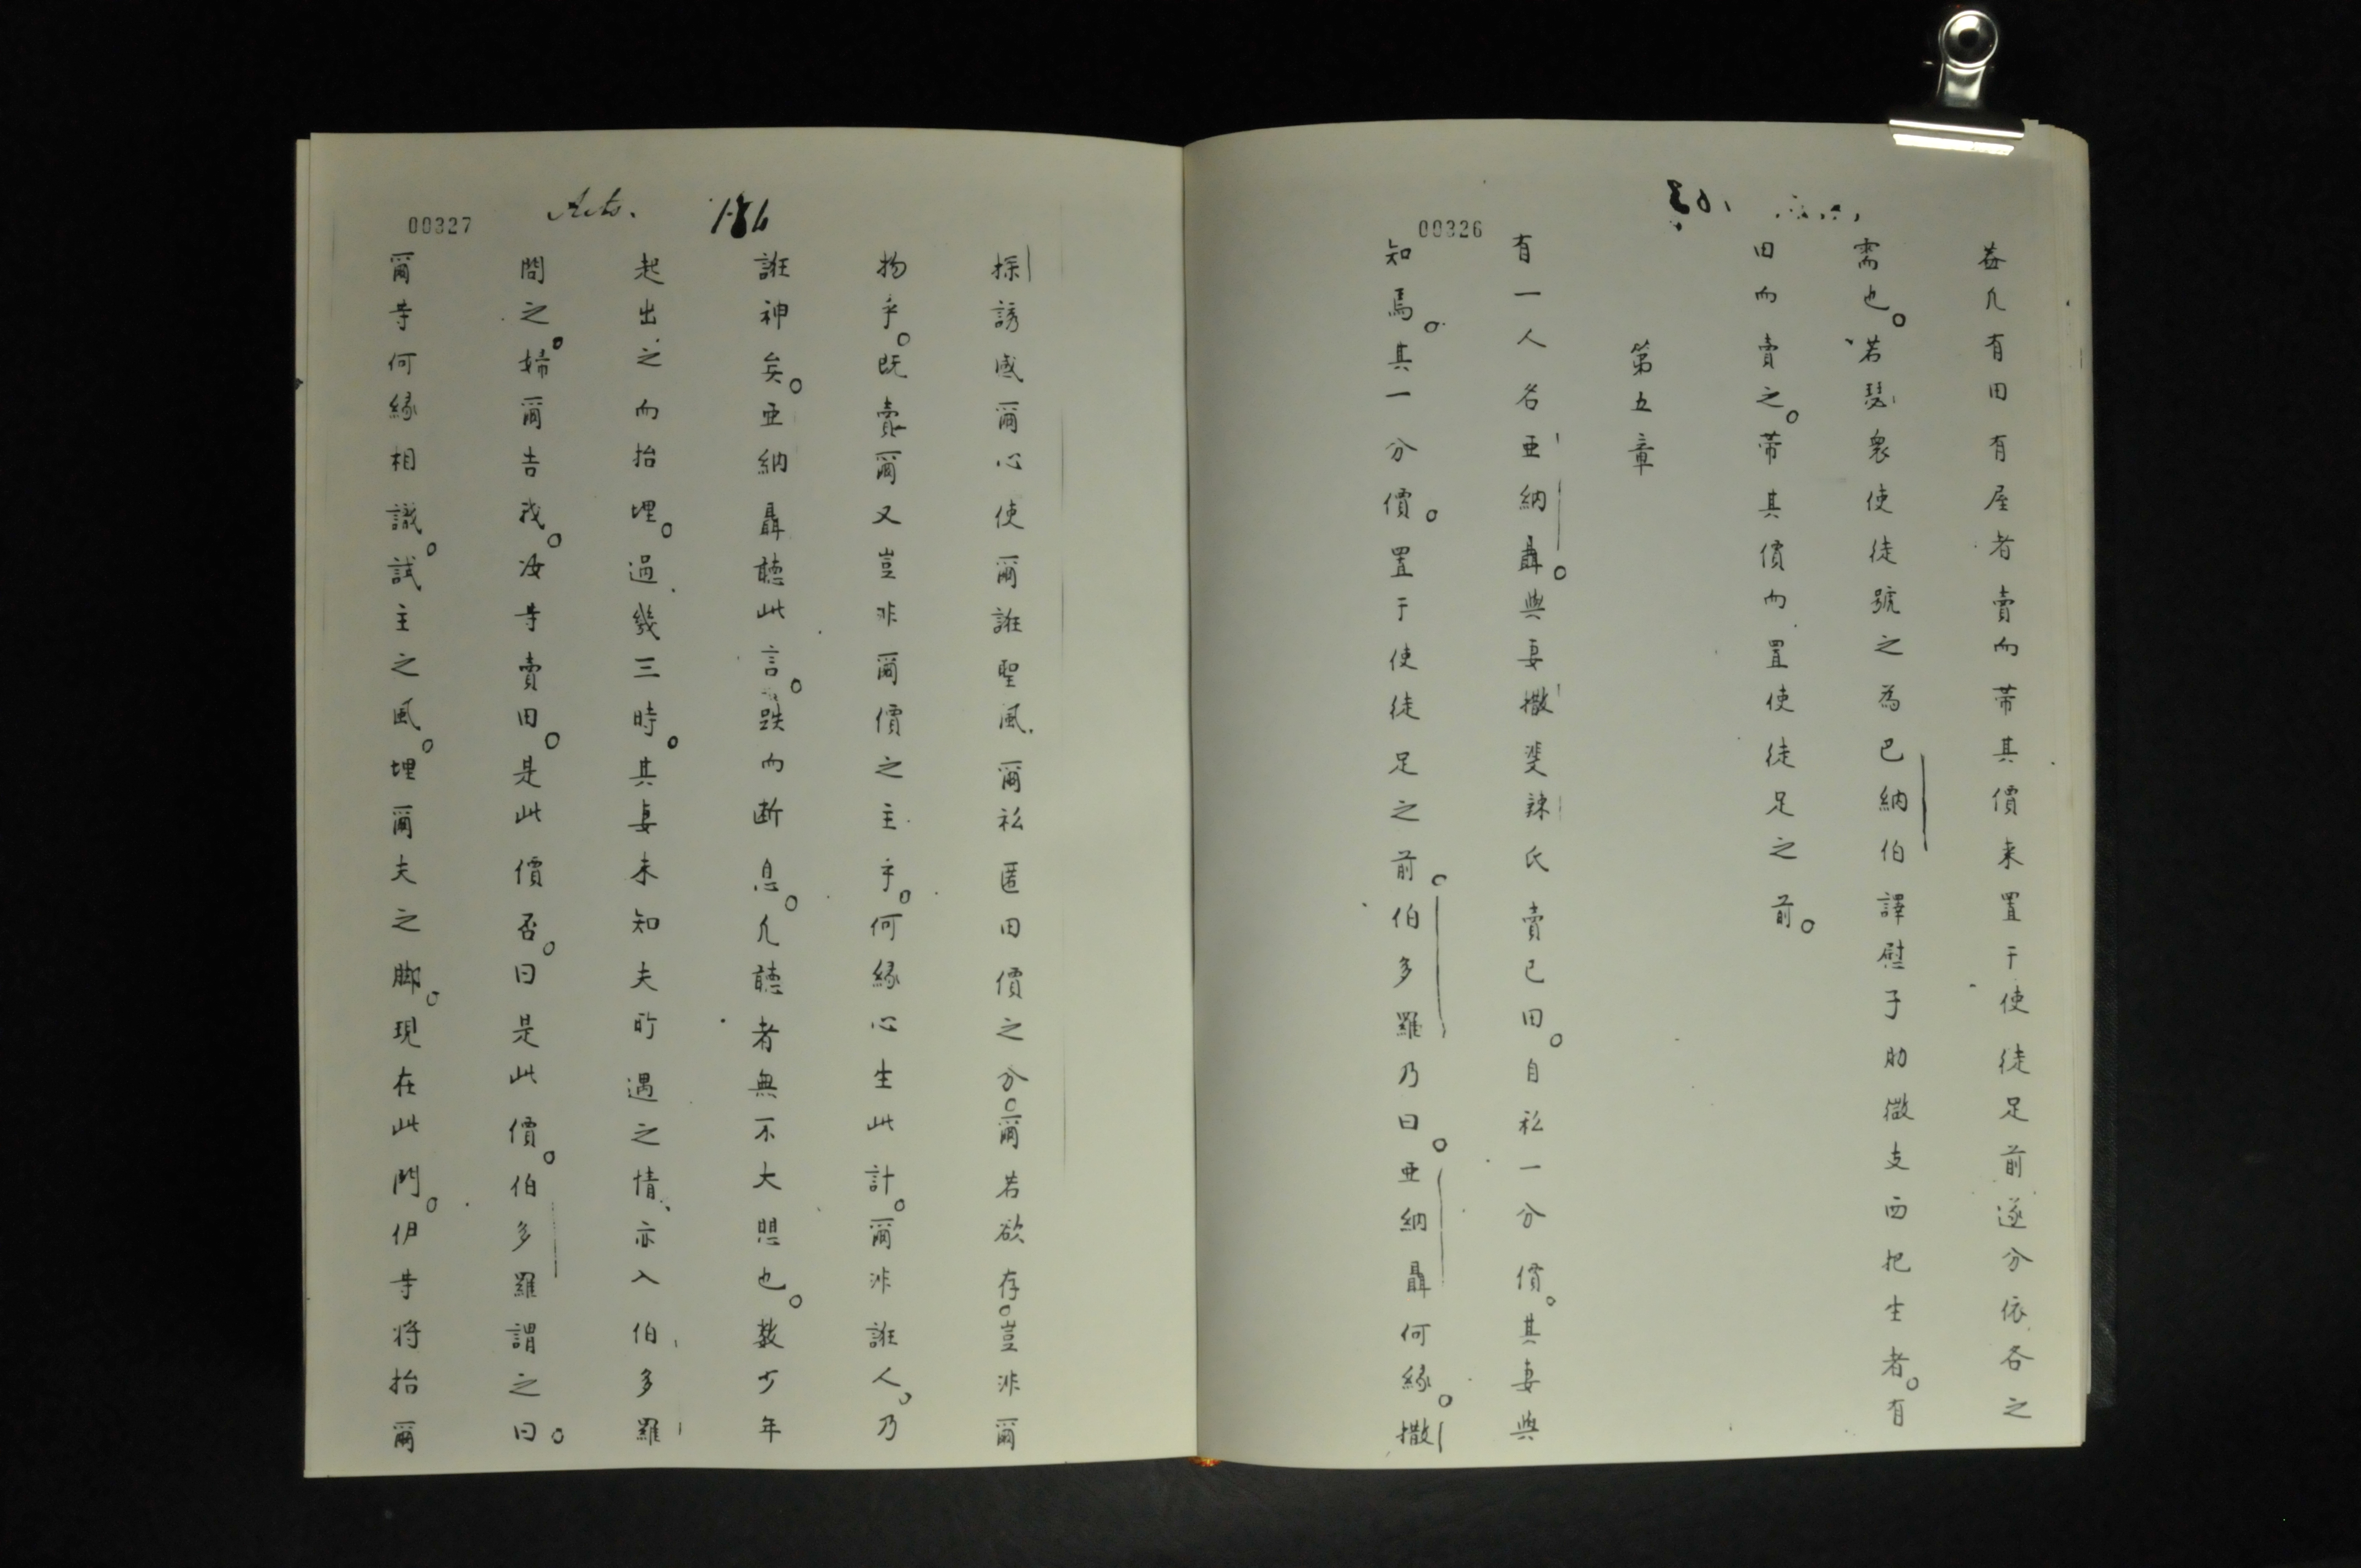 00326
盖凢有田有屋者賣而帯其價来置于使徒足前遂分依各之
需也。若瑟衆使徒號之為巴納伯譯慰子肋徵支西把生者。有
田而賣之。帯其價而置使徒足之前。
第五章
有一人名亜納聶。與妻撒斐辣氏賣己田。自私一分價。其妻與
知焉。其一分價。置于使徒足之前。伯多羅乃曰。亜納聶何縁。撒
00327
Acts.
186
探誘感爾心使爾誑聖風爾私匿田價之分。爾若欲存。豈非爾
物乎。既賣爾又豈非爾價之主乎。何縁心生此計。爾非誑人。乃
誑神矣。亜納聶聴此言。跌而断息。凢聴者無不大惧也。数少年
起出之而抬埋。過幾三時。其妻未知夫所遇之情、亦入伯多羅
問之。婦爾告我。汝等賣田。是此價否。曰是此價。伯多羅謂之曰。
爾等何縁相識。試主之風。埋爾夫之脚。現在此門。伊等将抬爾